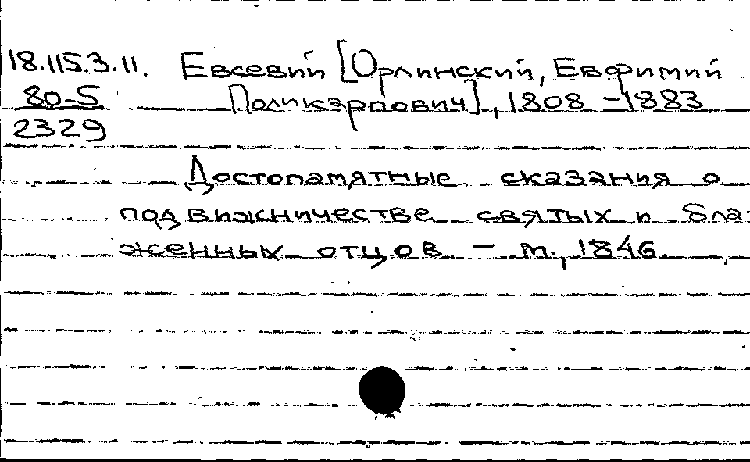 18.115.3.11. Евсевий [Орлинский, Евфимий
80-5 Поликарпович], 1808-1883
2329
Достопамятные сказания о
подвижничестве святых и бла-
женных отцов - м., 1846